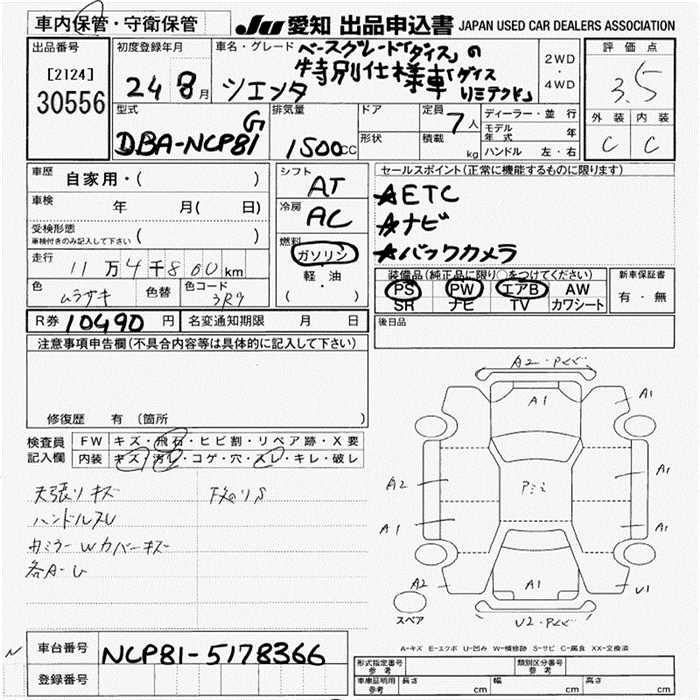 車内保管・守衛保管
JU 愛知 出品申込書 JAPAN USED CAR DEALERS ASSOCIATION
出品番号
[2124]
30556
初度登録年月
24 8月
車名・グレード
シエンタ
ベースグレード「ダイス」の
特別仕様車「ダイス
リミテッド」
2WD
・
4WD
評価点
3.5
外装 内装
C C
型式
DBA-NCP81G
排気量
1500CC
ドア
形状
定員
7人
積載
kg
ディーラー・並行
モデル年式 年
ハンドル 左・右
車歴
自家用・( )
車検
年 月( 日)
受検形態
車検付きのみ記入して下さい ( )
走行
11万4千800km
色
ムラサキ
色替
色コード
3R9
R券 10490円
名変通知期限 月 日
シフト
AT
冷房
AC
燃料
ガソリン
軽・油
( ・ )
セールスポイント(正常に機能するものに限ります)
★ETC
★ナビ
★バックカメラ
装備品(純正品に限り○をつけてください)
PS PW エアB AW
SR ナビ TV カワシート
新車保証書
有・無
後日品
注意事項申告欄(不具合内容等は具体的に記入して下さい)
修復歴 有(箇所 )
検査員
記入欄
FW キズ・飛石・ヒビ割・リペア跡・X要
内装 キズ・汚レ・コゲ・穴・スレ・キレ・破レ
天張りキズ
ハンドルスレ
内ミラーWカバーキズ
各A・U
下廻りS
A2・Pぐぐ
A1
A1
A1
A2
Pミミ
A1
A1
A1
A2
A1
U1
U2・Pぐぐ
スペア
A-キズ E-エクボ U-凹み W-補修跡 S-サビ C-腐食 XX-交換済
N
車台番号
NCP81-5178366
登録番号
形式指定番号
参考
類別区分番号
参考
車庫証明用
参考
長さ cm
幅 cm
高さ cm